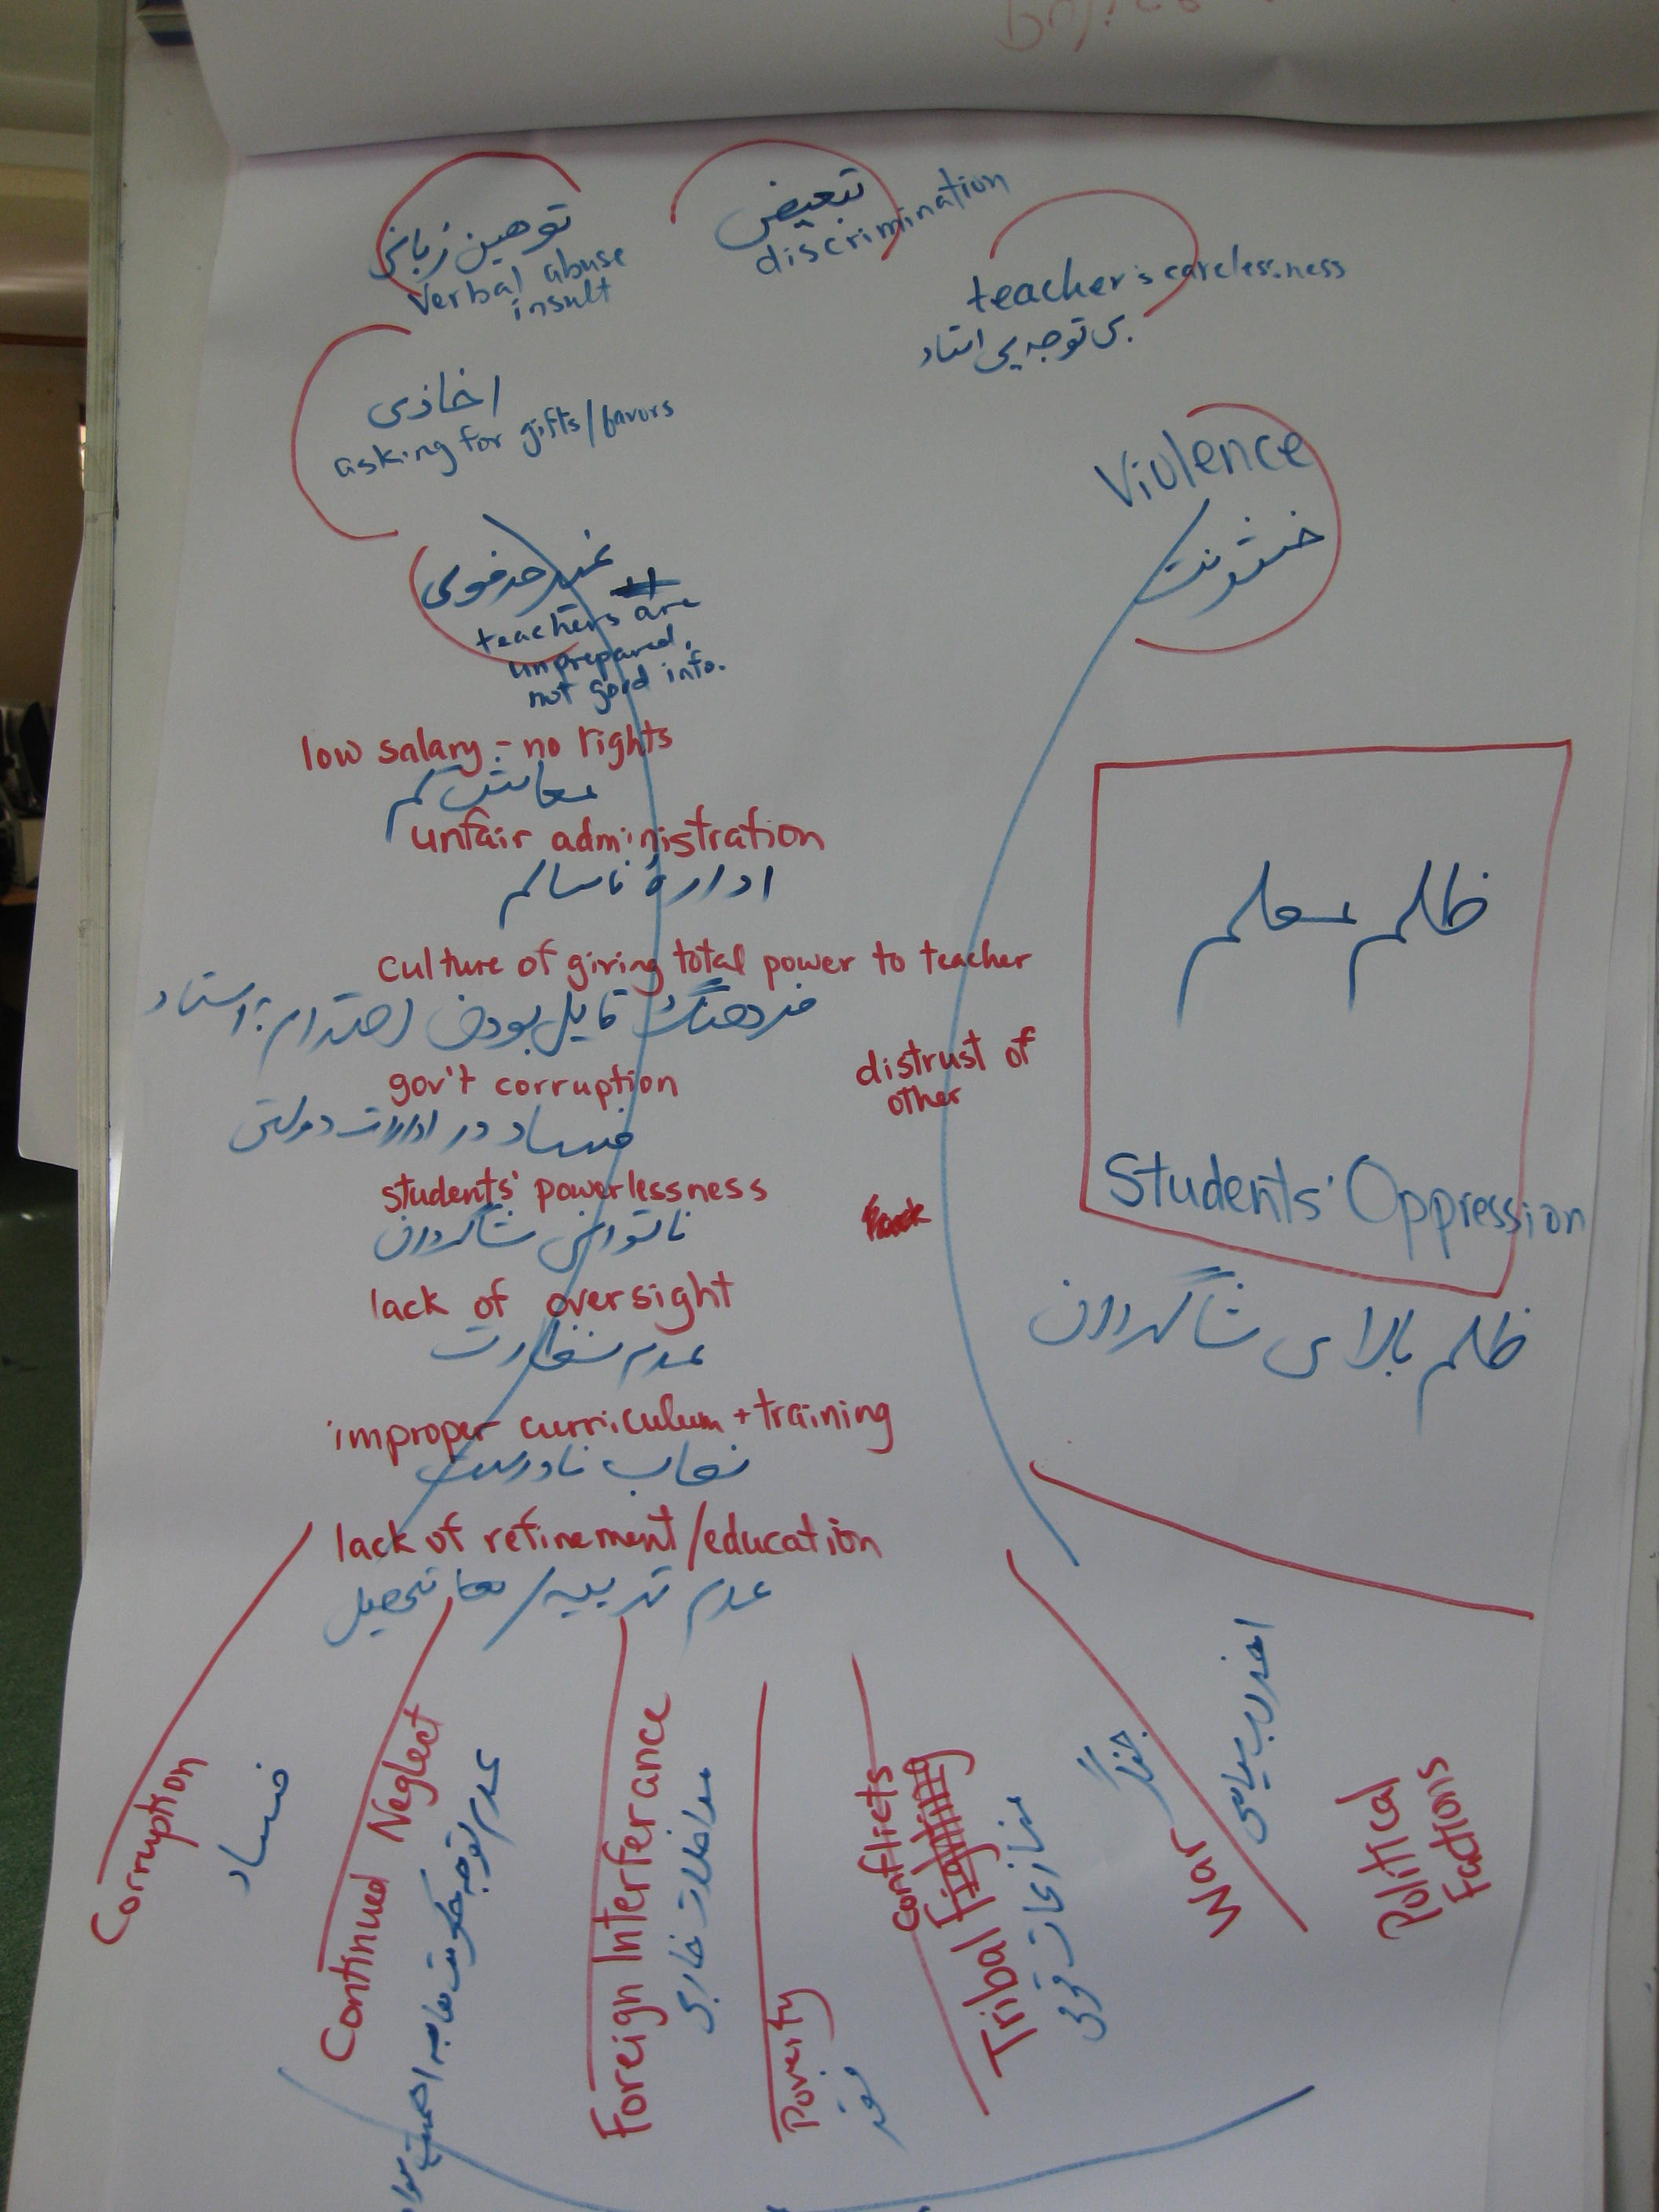 توهین زبانی
Verbal abuse
insult
تبعیض
discrimination
teacher's carelessness
بی توجه یی استاد
اخاذی
asking for gifts/favors
Violence
خشونت
غیر حرفوی
teachers are
unprepared,
not good info.
low salary - no rights
معاش کم
unfair administration
ادارهٔ ناسالم
culture of giving total power to teacher
فرهنگ قایل بودن احترام به استاد
distrust of
other
gov't corruption
فساد در ادارات دولتی
students' powerlessness
ناتوانی شاگردان
lack of oversight
عدم نظارت
improper curriculum + training
نصاب نادرست
lack of refinement/education
عدم تربیه / تحصیل
ظلم معلم
Students' Oppression
ظلم بالای شاگردان
Corruption
فساد
Continued Neglect
عدم توجه حکومت
Foreign Interferance
مداخلات خارجی
Poverty
فقر
Tribal Fighting
conflicts
منازعات قومی
War
جنگ
Political
Factions
احزاب سیاسی